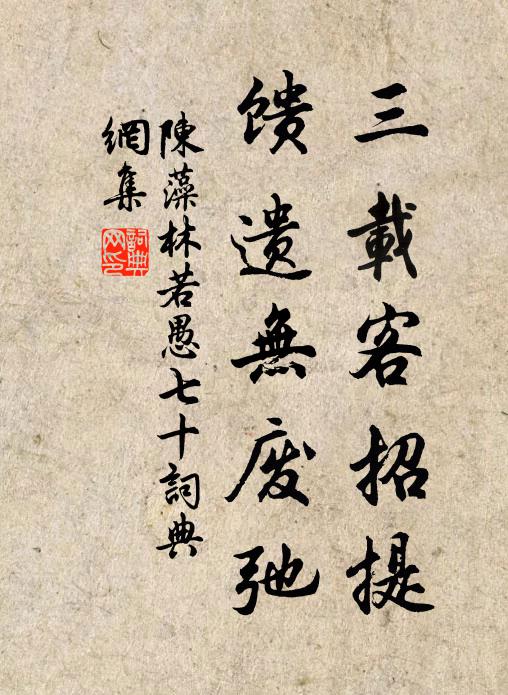 三載客招提
馈遗無废弛
陳藻林若愚七十詞典
網集
詞典網印